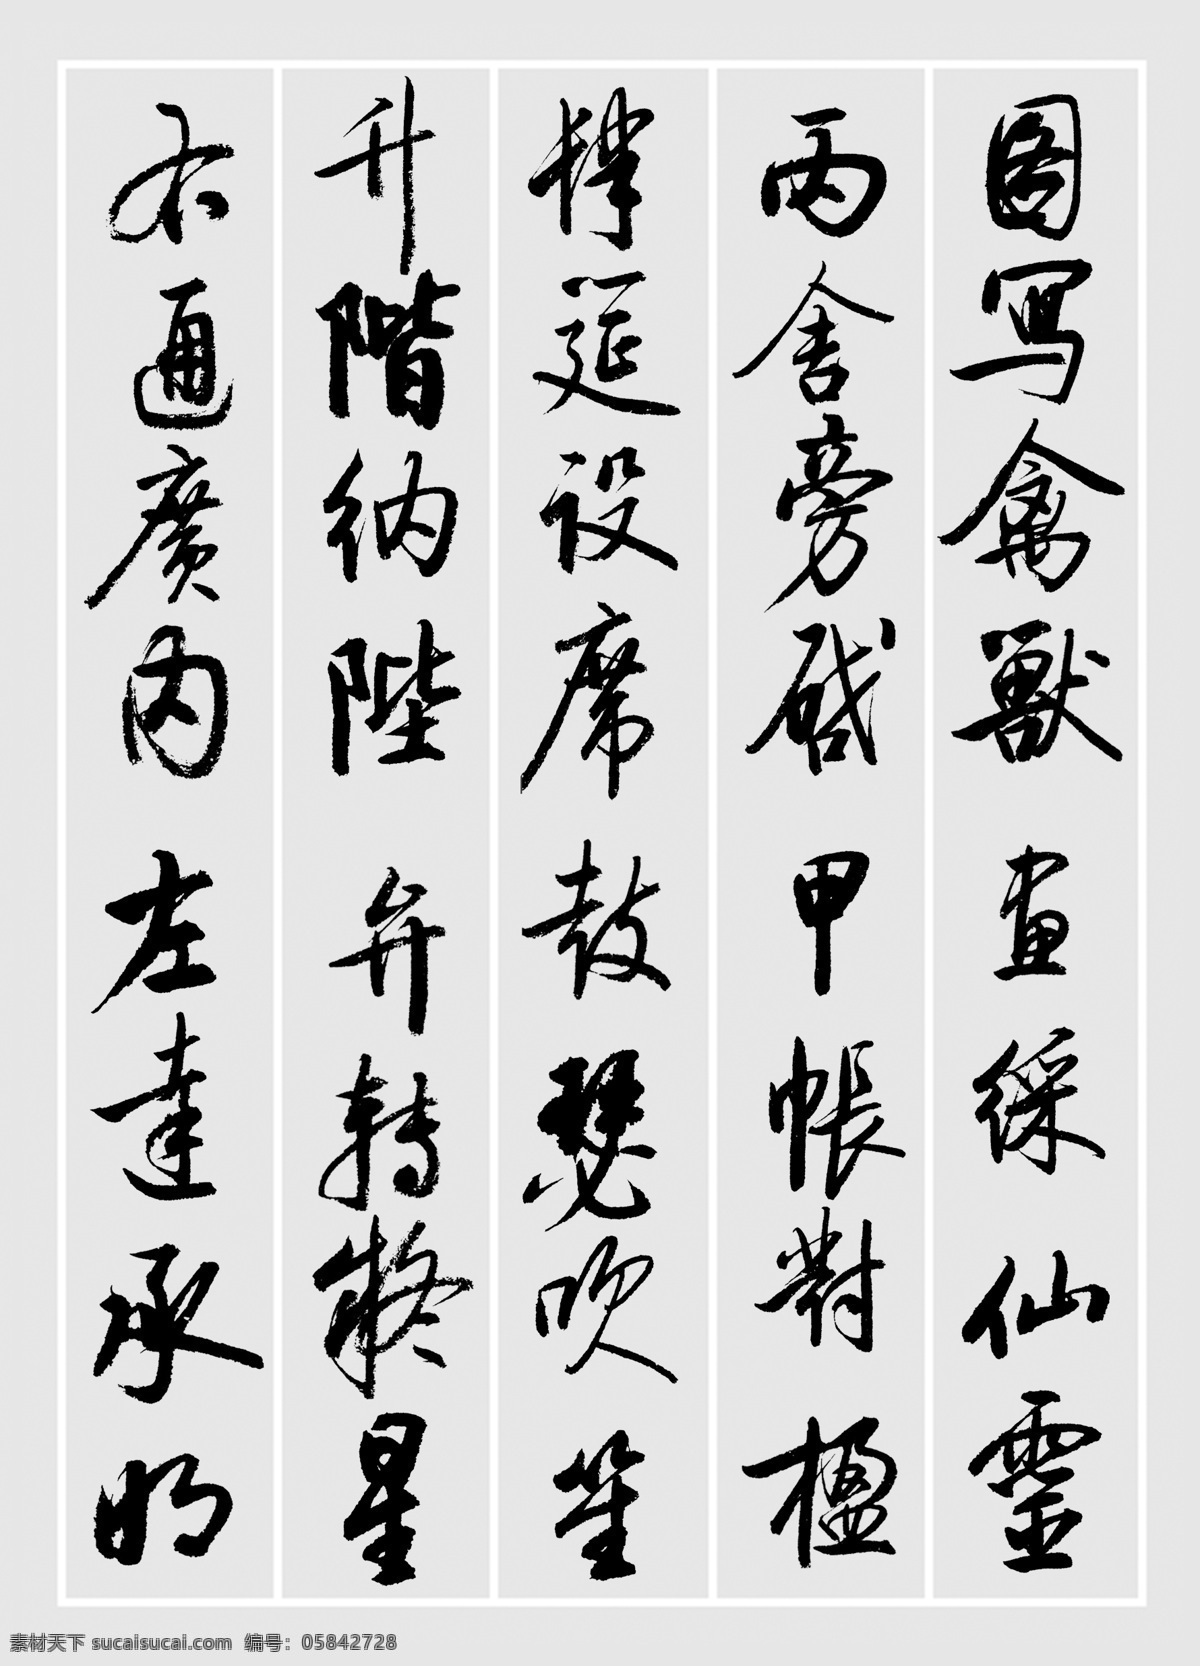 圖寫禽獸畫綵仙靈
丙舍旁啟甲帳對楹
肆筵設席鼓瑟吹笙
升階納陛弁轉疑星
右通廣內左達承明
素材天下 sucaisucai.com 编号：05842728